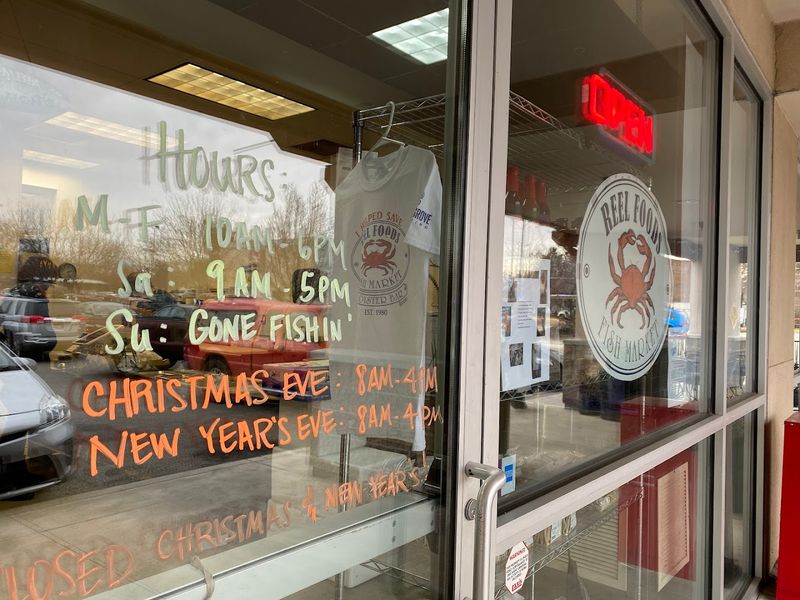 HOURS:
M-F 10AM-6PM
Sa: 9AM-5PM
Su: GONE FISHIN'
CHRISTMAS EVE: 8AM-4PM
NEW YEAR'S EVE: 8AM-4PM
CLOSED CHRISTMAS & NEW YEAR'S!
I HELPED SAVE
REEL FOODS
FISH MARKET
OYSTER BAR
EST. 1980
GROVE
OPEN
REEL FOODS
FISH MARKET